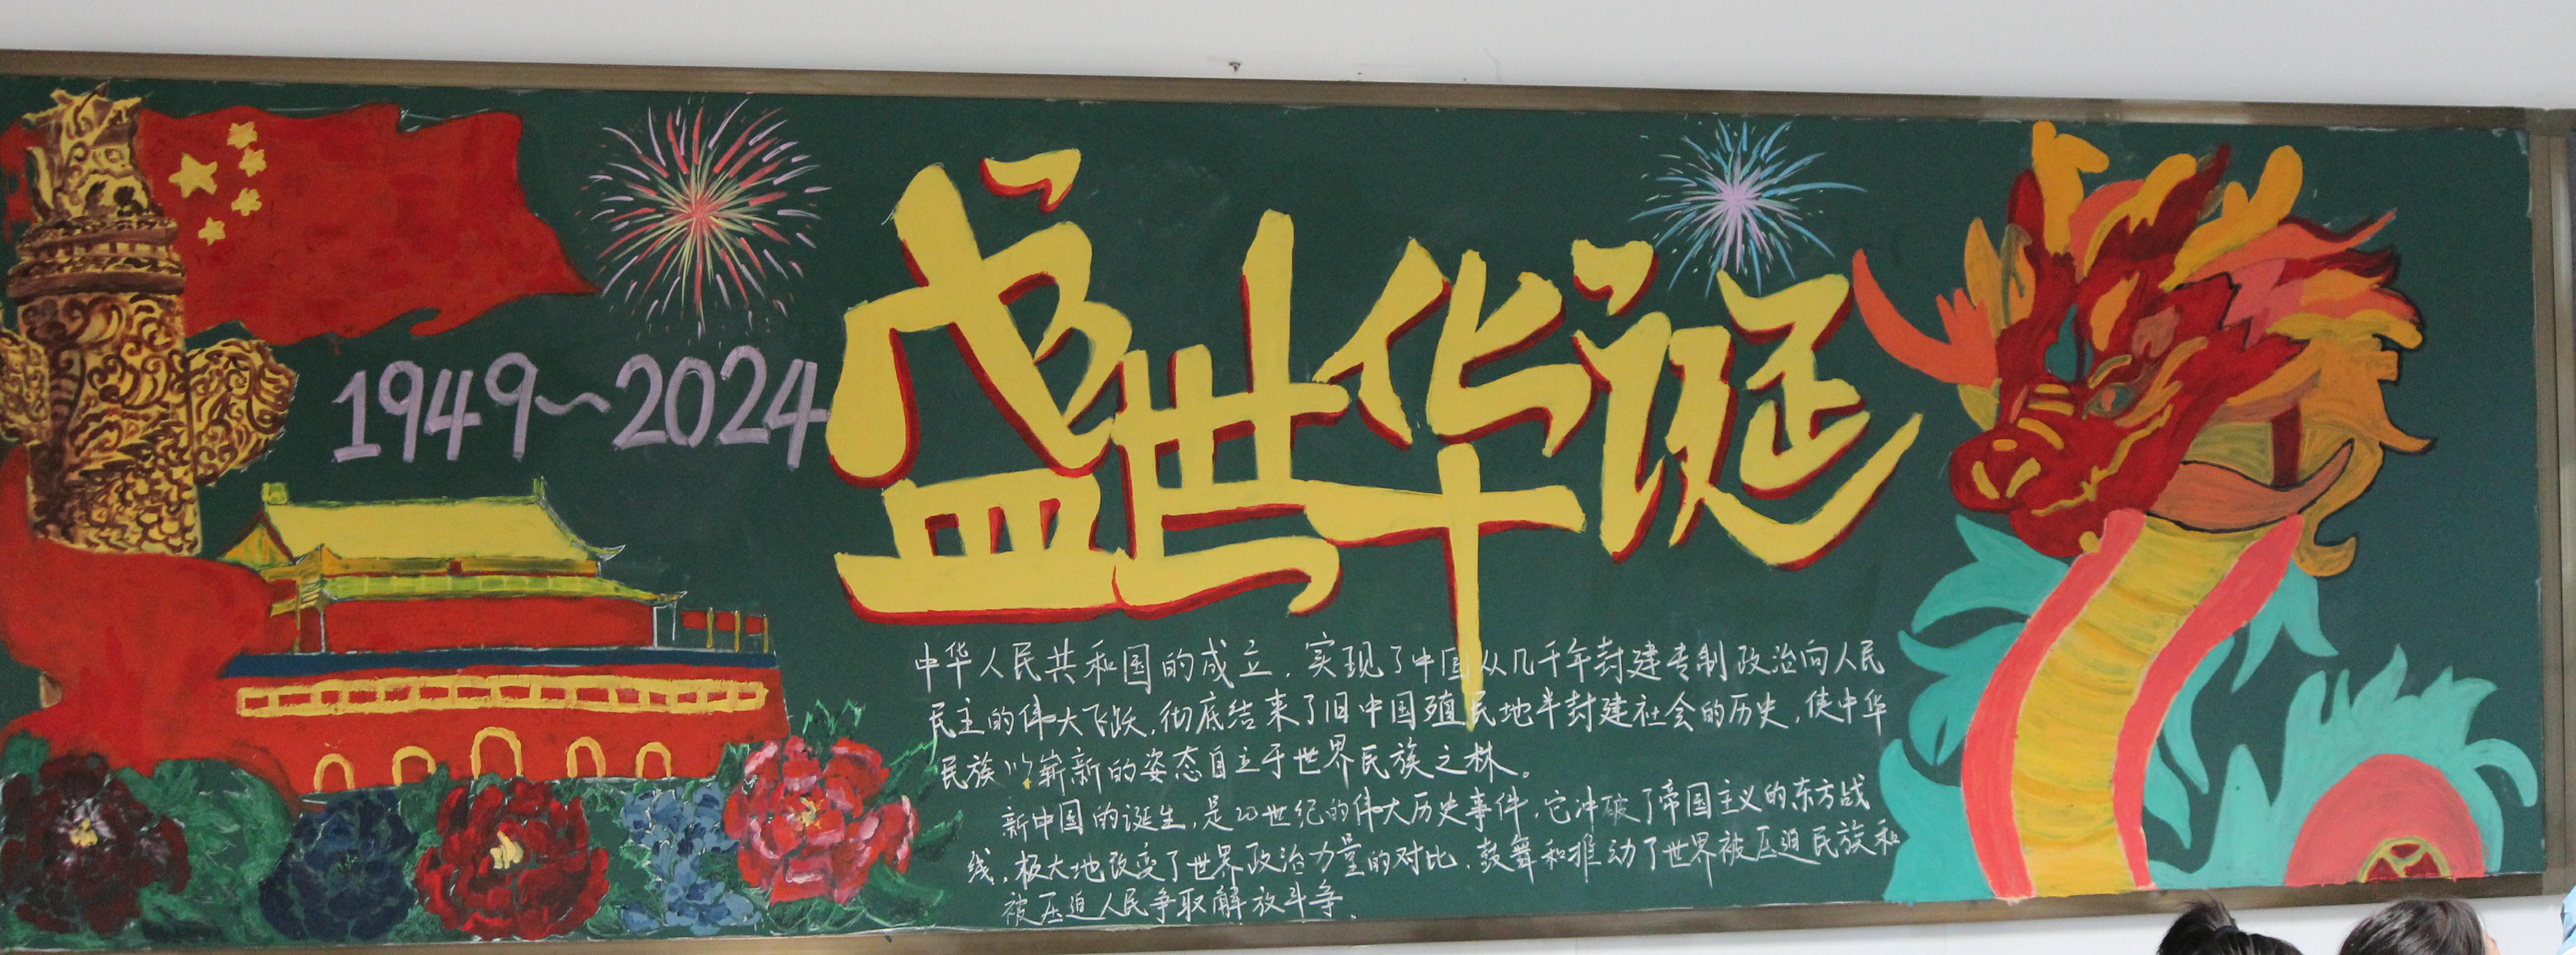 1949~2024
盛世华诞
中华人民共和国的成立，实现了中国从几千年封建专制政治向人民
民主的伟大飞跃，彻底结束了旧中国殖民地半封建社会的历史，使中华
民族以崭新的姿态自立于世界民族之林。
新中国的诞生，是20世纪的伟大历史事件，它冲破了帝国主义的东方战
线，极大地改变了世界政治力量的对比，鼓舞和推动了世界被压迫民族和
被压迫人民争取解放斗争。